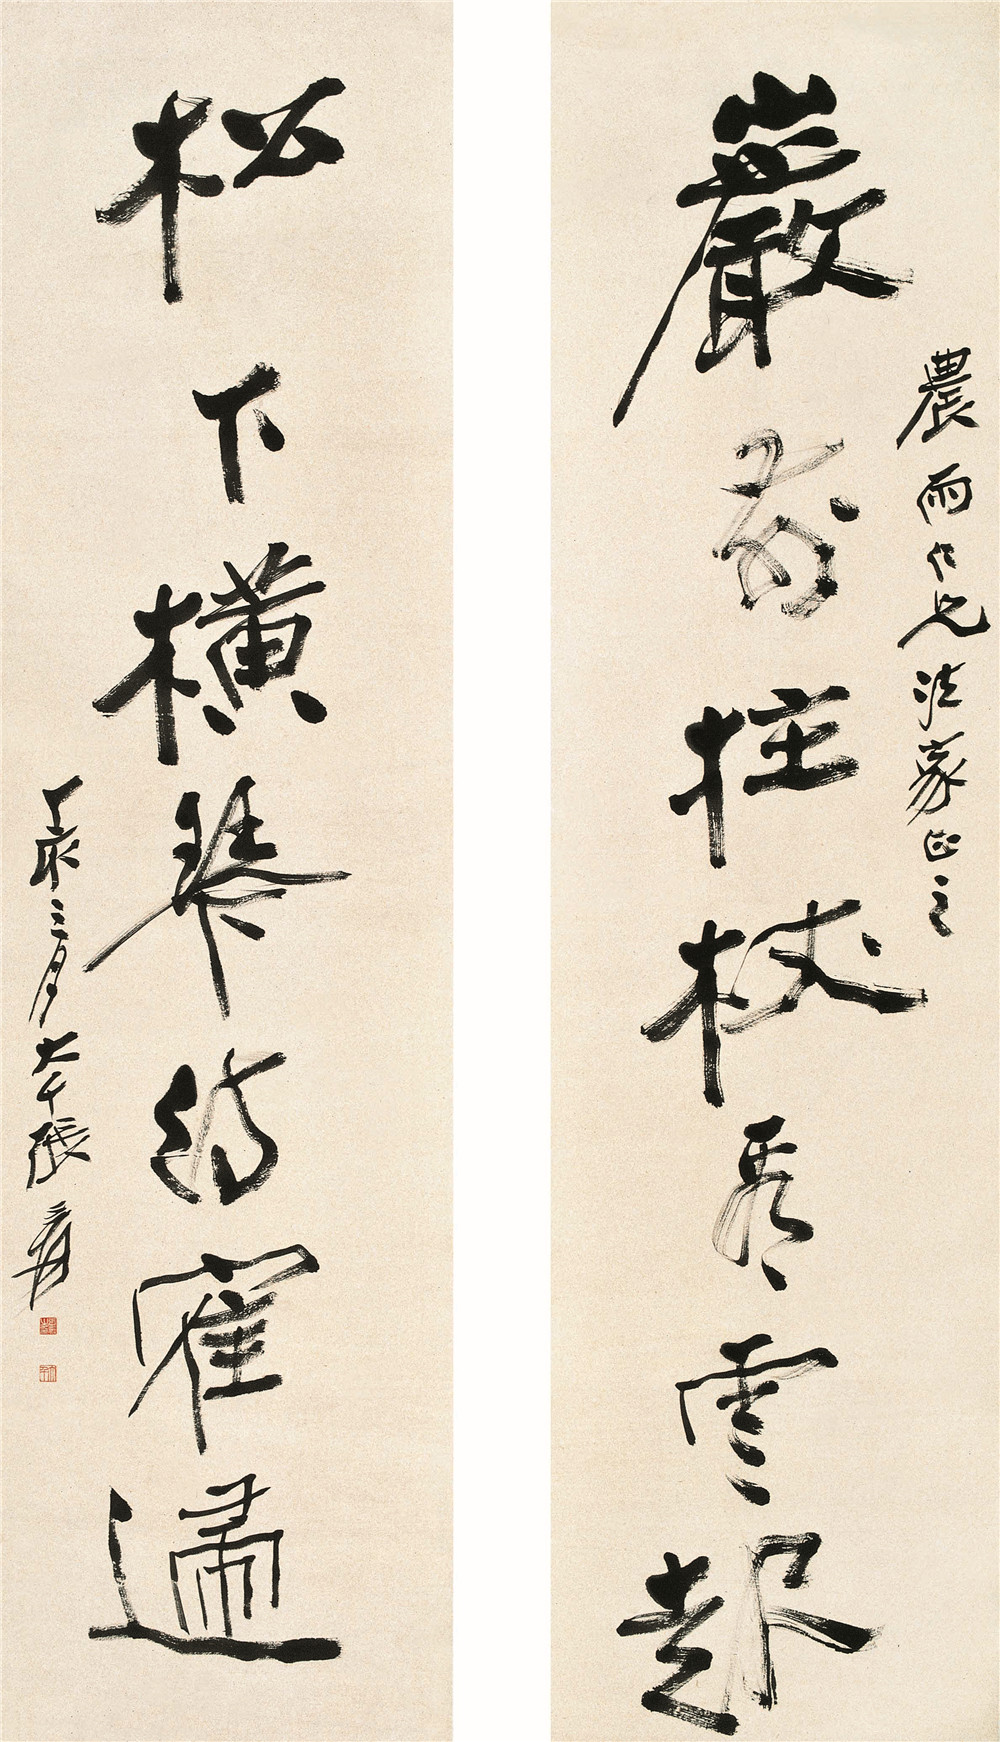 農雨仁兄法家正之
巖前拄杖看雲起
松下橫琴待寉歸
丁亥三月大千張爰